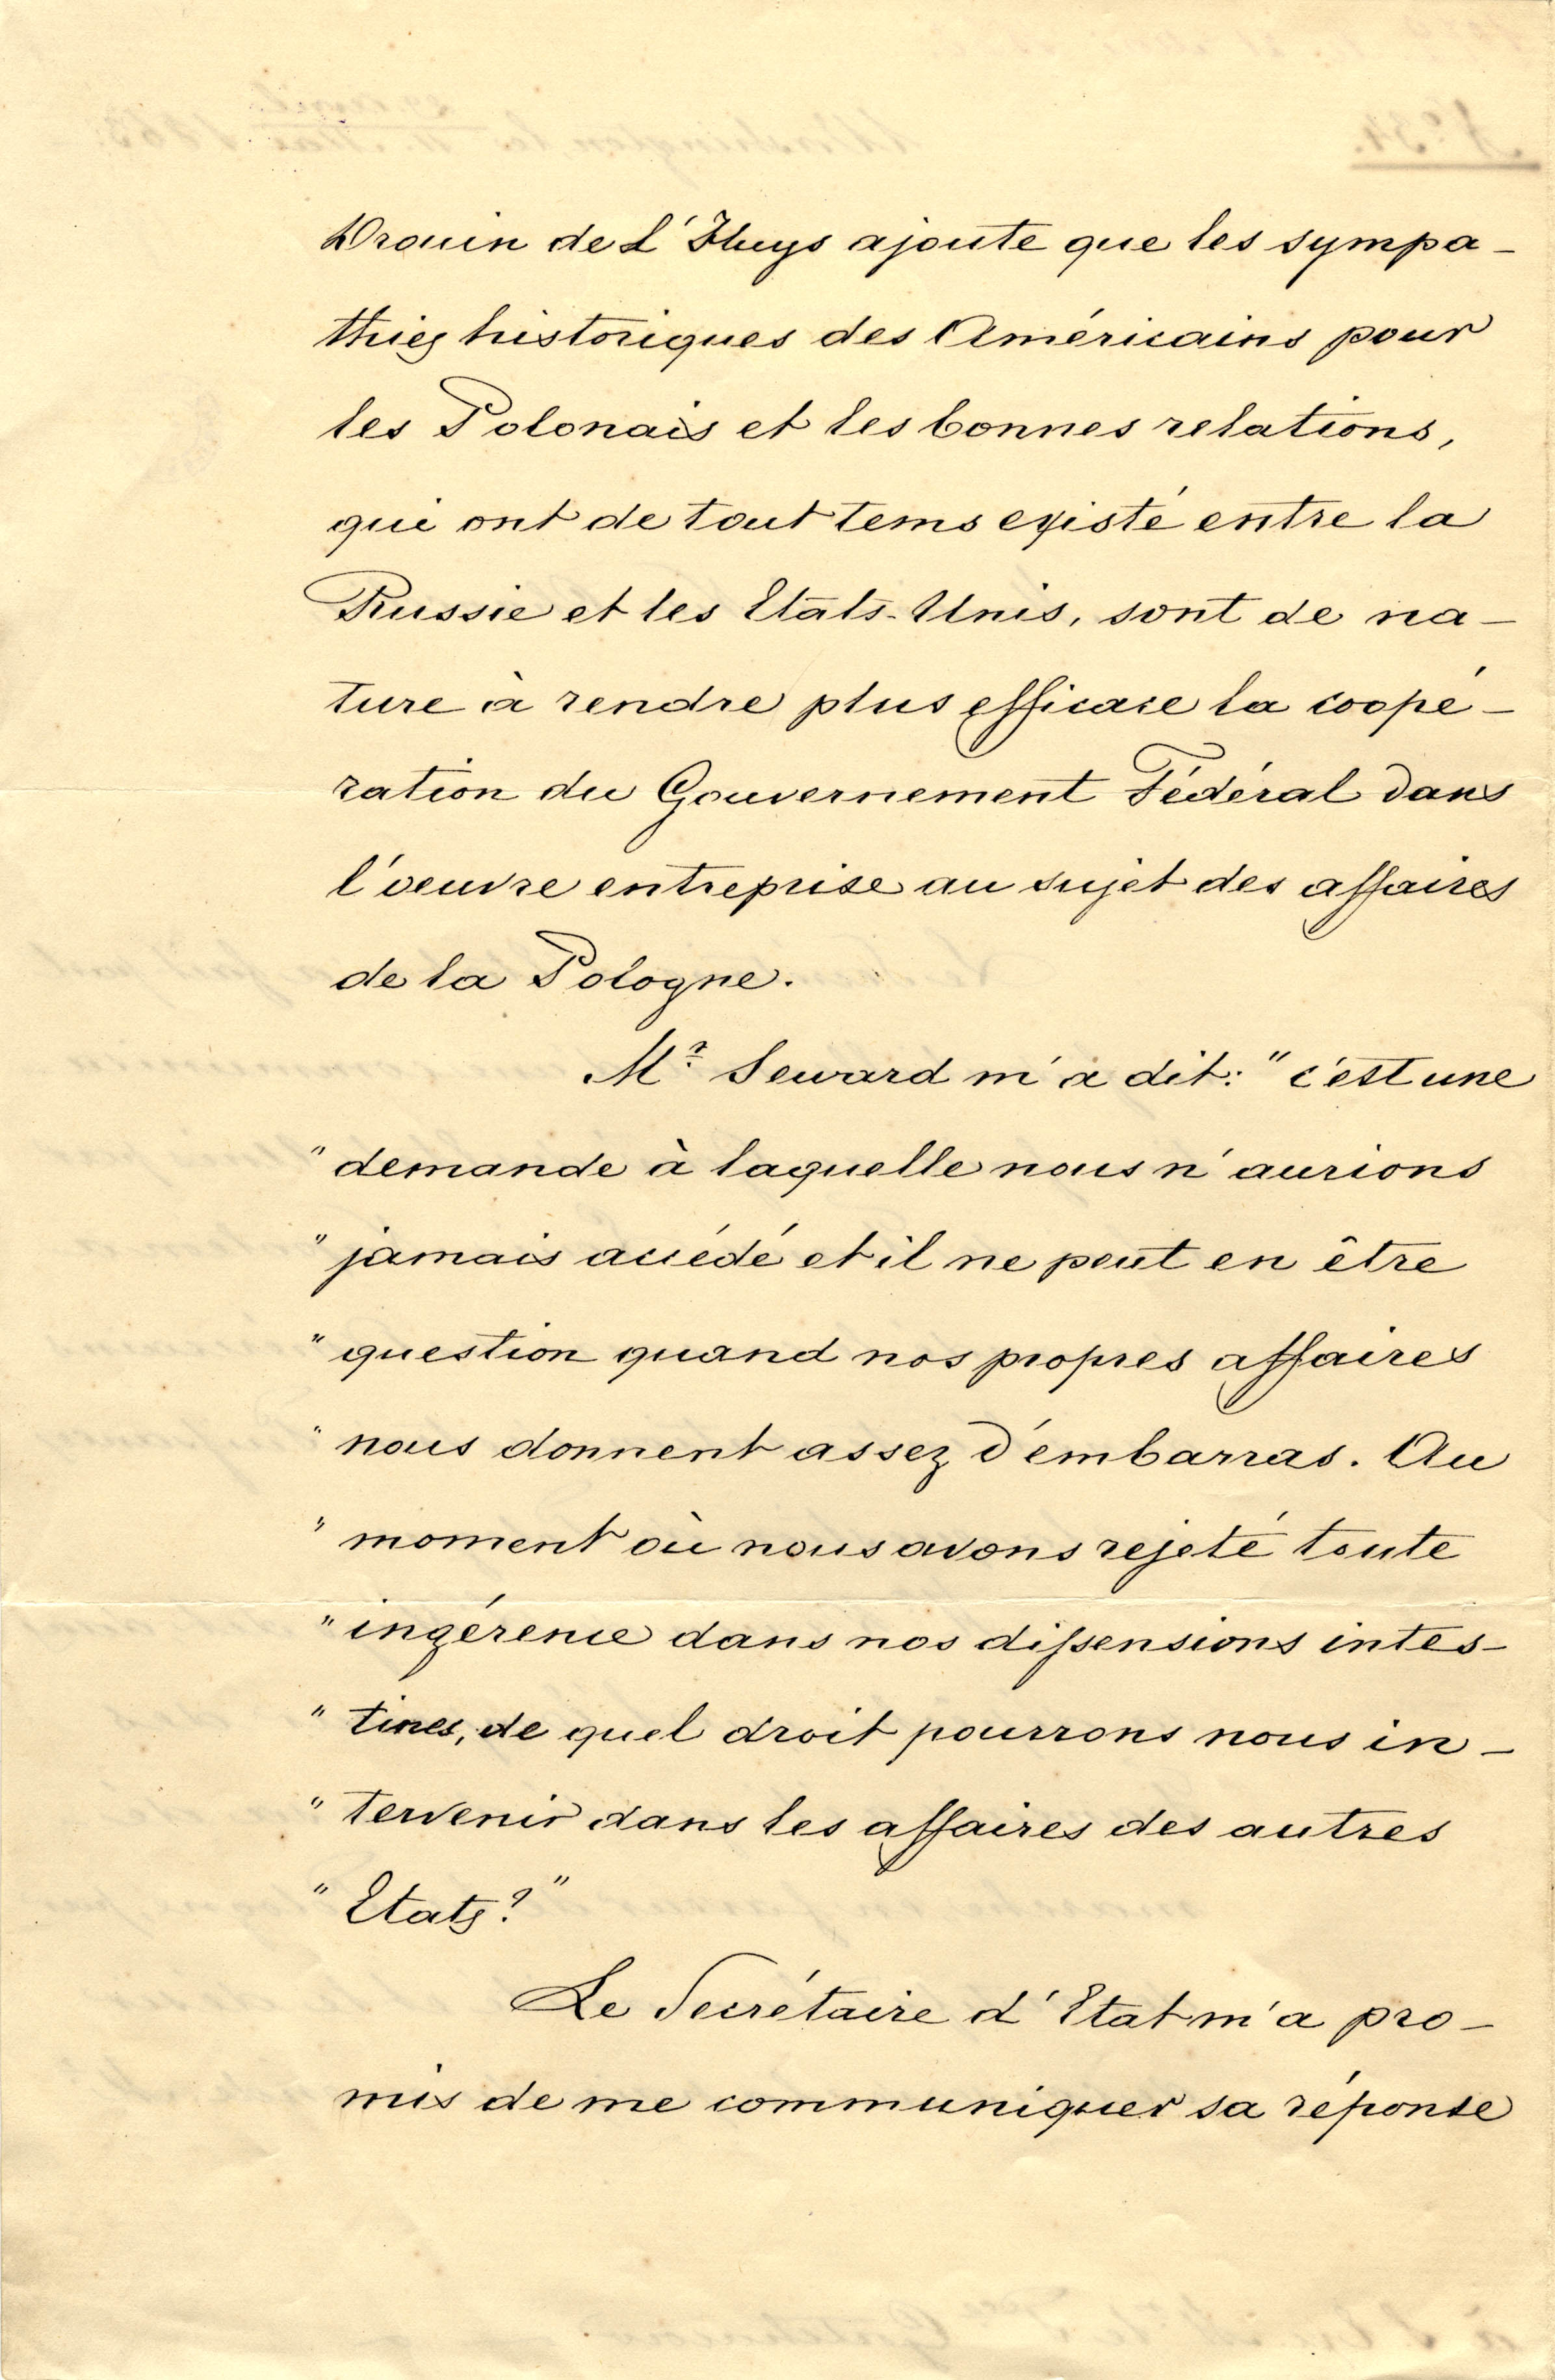 Drouin de L'Huys ajoute que les sympa-
thies historiques des Américains pour
les Polonais et les bonnes relations,
qui ont de tout tems existé entre la
Russie et les Etats-Unis, sont de na-
ture à rendre plus efficace la coopé-
ration du Gouvernement Fédéral dans
l'oeuvre entreprise au sujet des affaires
de la Pologne.
Mr Seward m'a dit: "c'est une
"demande à laquelle nous n'aurions
"jamais accédé et il ne peut en être
"question quand nos propres affaires
"nous donnent assez d'embarras. Au
"moment où nous avons rejeté toute
"ingérence dans nos dissensions intes-
"tines, de quel droit pourrons nous in-
"tervenir dans les affaires des autres
"Etats?"
Le Secrétaire d'Etat m'a pro-
mis de me communiquer sa réponse